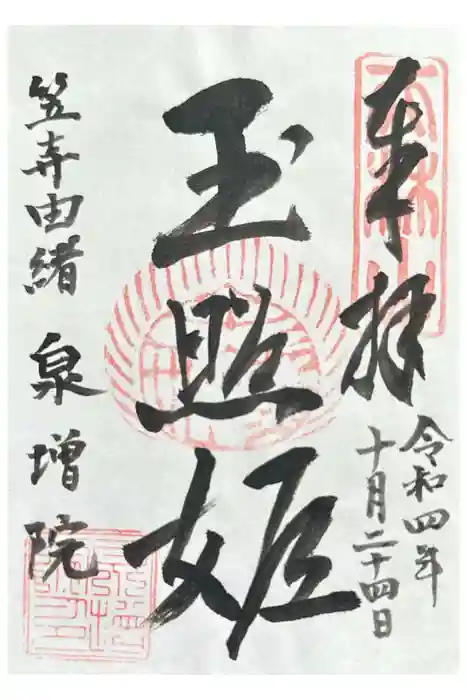 奉拝
令和四年
十月二十四日
玉照姫
笠寺由緒 泉増院